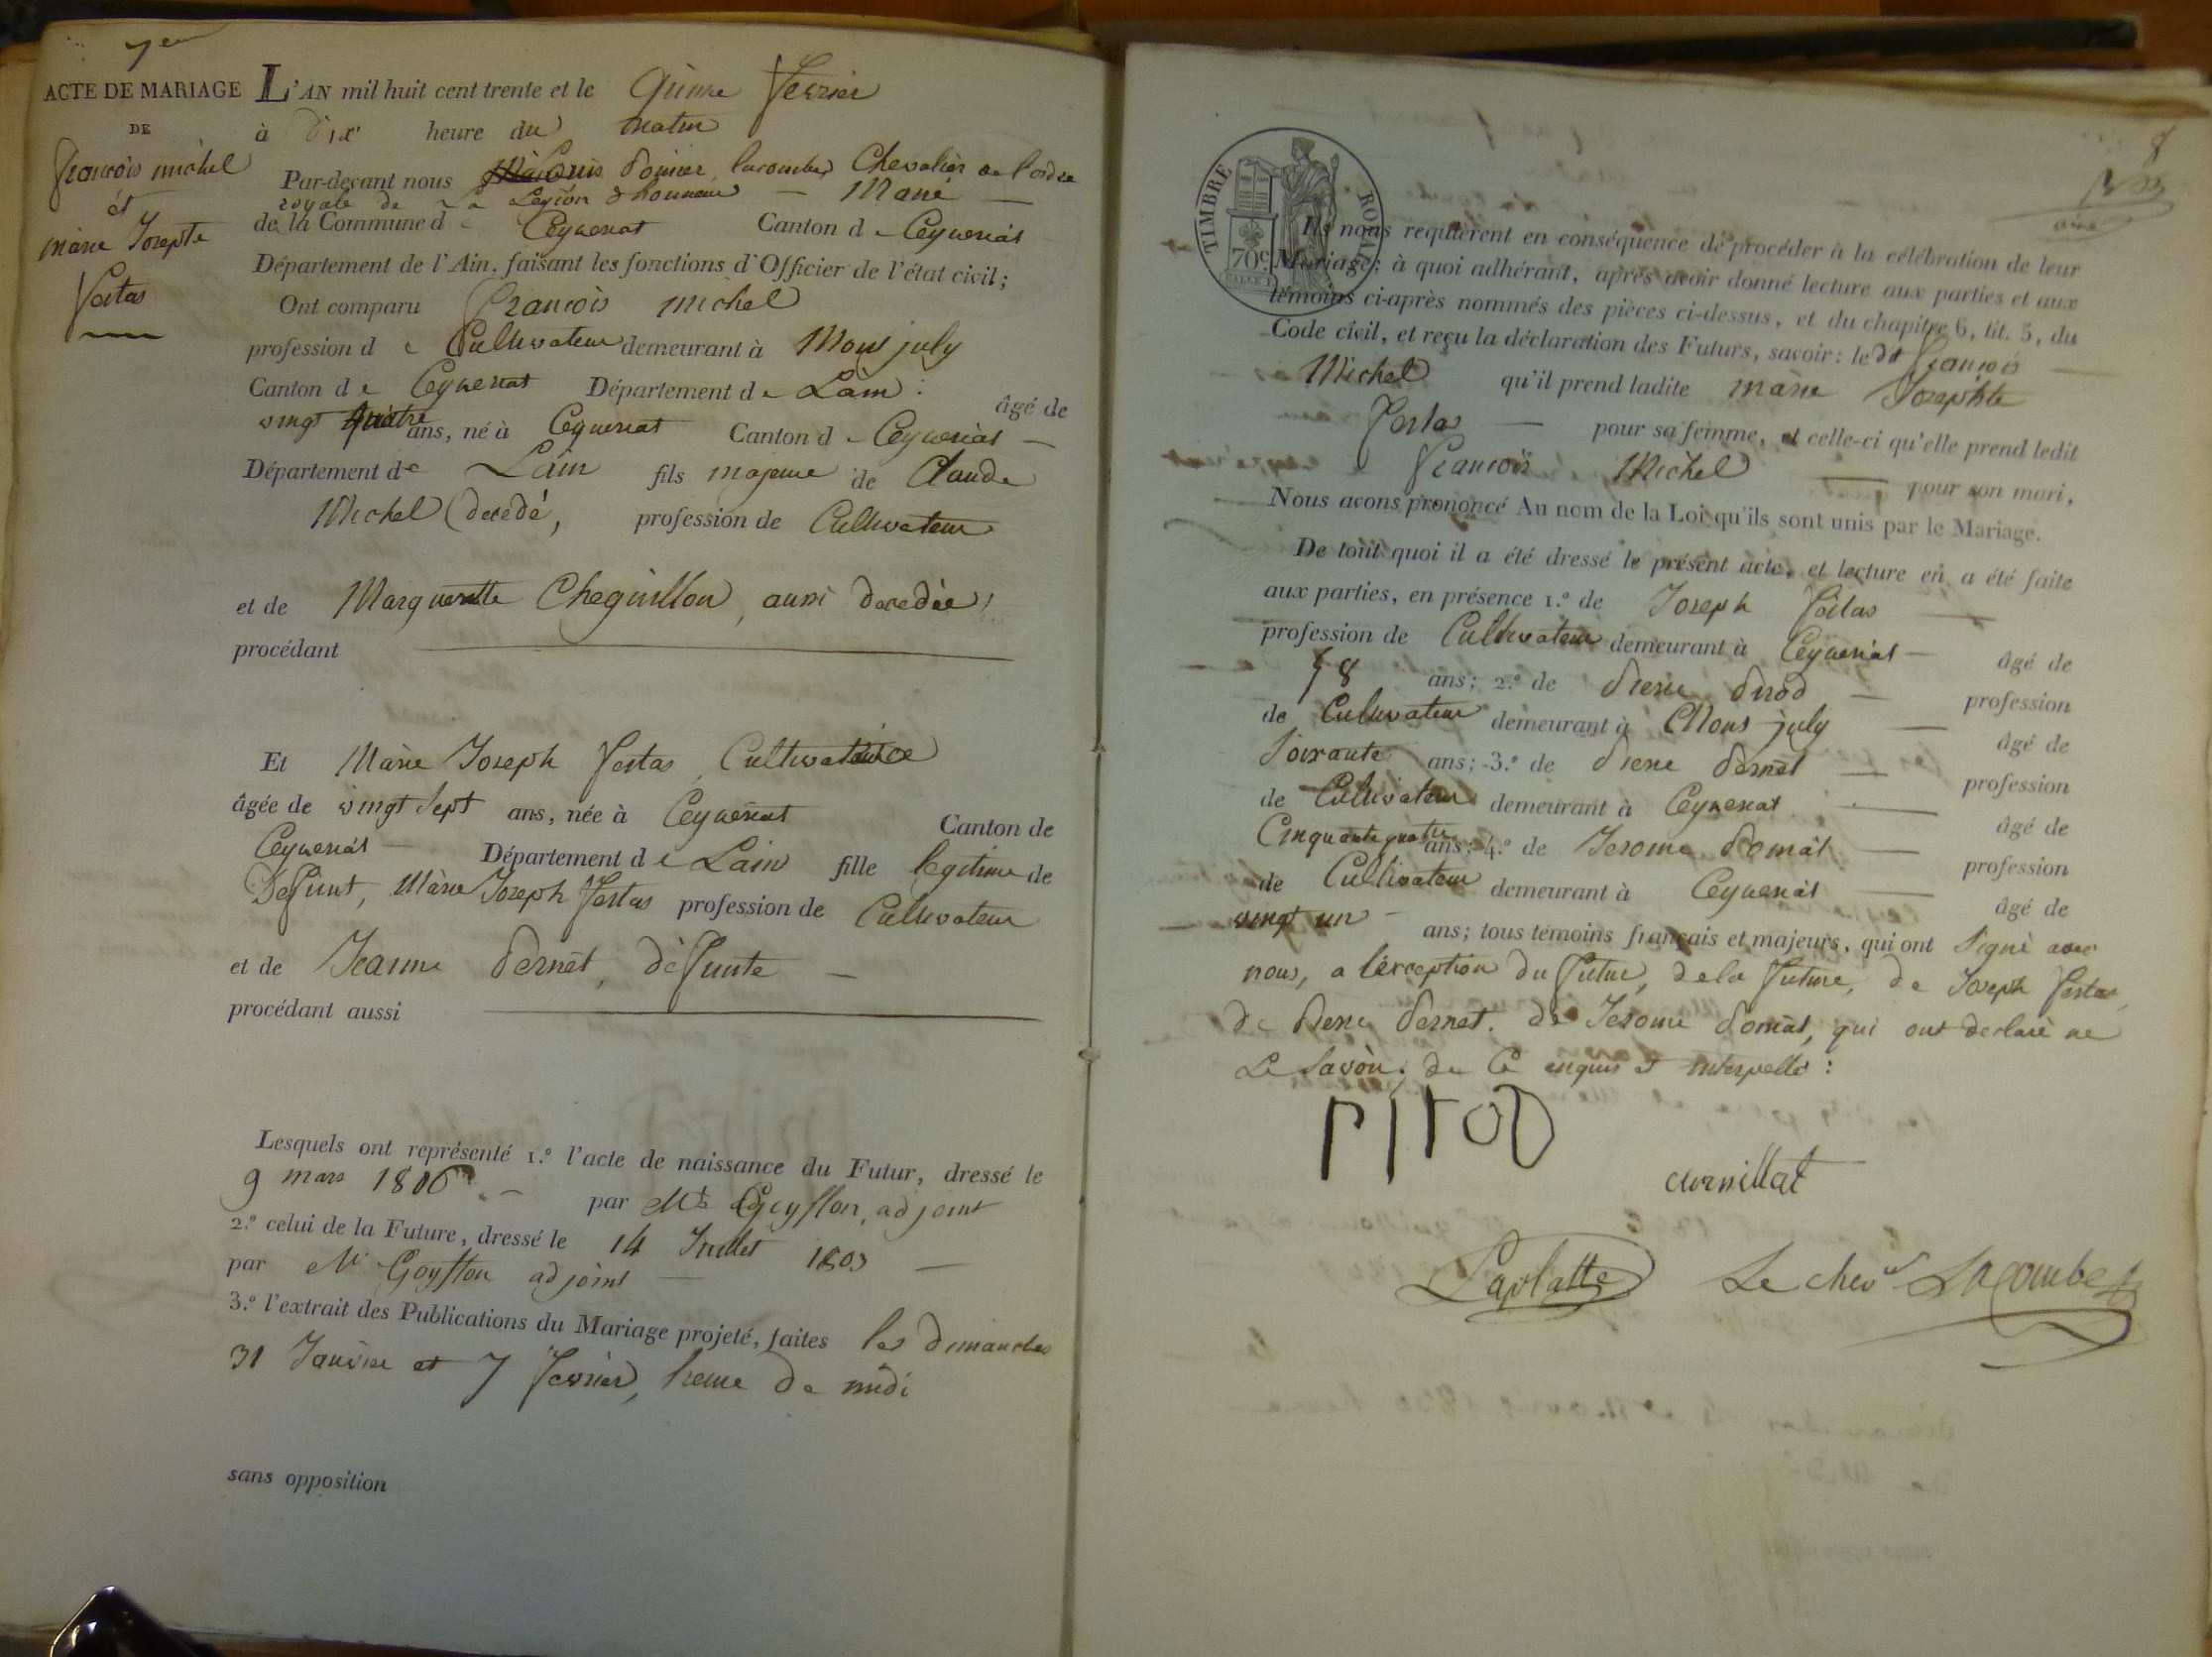 7e
ACTE DE MARIAGE
DE
françois michel
et
marie Josephte
festas
L'AN mil huit cent trente et le Quinze fevrier
à dix heure du matin
Par-devant nous Louis lacombe, Chevalier de l'ordre
royale de La Legion d honneur — Maire —
de la Commune de Ceyzeriat Canton de Ceyzeriat
Département de l'Ain, faisant les fonctions d'Officier de l'état civil;
Ont comparu françois michel
profession de Cultivateur demeurant à Mont july
Canton de Ceyzeriat Département de Lain : âgé de
vingt quatre ans, né à Ceyzeriat Canton de Ceyzeriat —
Département de Lain fils majeur de Claude
Michel decédé, profession de Cultivateur
et de Margueritte Cheguillon, aussi decedée
procédant
Et Marie Joseph festas, Cultivatrice
âgée de vingt sept ans, née à Ceyzeriat Canton de
Ceyzeriat — Département de Lain fille legitime de
Defunt, Marie Joseph festas profession de Cultivateur
et de Jeanne Pernet, défunte —
procédant aussi
Lesquels ont représenté 1.º l'acte de naissance du Futur, dressé le
9 mars 1806 — par Mr Goyffon, adjoint
2.º celui de la Future, dressé le 14 Juillet 1803 —
par Mr Goyffon adjoint —
3.º l'extrait des Publications du Mariage projeté, faites les dimanches
31 Janvier et 7 fevrier, heure de midi
sans opposition
8
TIMBRE ROYAL
70c
Ils nous requièrent en conséquence de procéder à la célébration de leur
Mariage; à quoi adhérant, après avoir donné lecture aux parties et aux
témoins ci-après nommés des pièces ci-dessus, et du chapitre 6, tit. 5, du
Code civil, et reçu la déclaration des Futurs, savoir: ledt françois —
Michel qu'il prend ladite marie Josephte
festas — pour sa femme, et celle-ci qu'elle prend ledit
francois Michel — pour son mari,
Nous avons prononcé Au nom de la Loi qu'ils sont unis par le Mariage.
De tout quoi il a été dressé le présent acte, et lecture en a été faite
aux parties, en présence 1.º de Joseph festas —
profession de Cultivateur demeurant à Ceyzeriat — âgé de
58 ans; 2.º de Pierre Pirod — profession
de Cultivateur demeurant à Mont july — âgé de
Soixante ans; 3.º de Pierre Pernet — profession
de Cultivateur demeurant à Ceyzeriat — âgé de
Cinquante quatre ans; 4.º de Jerome Pomat — profession
de Cultivateur demeurant à Ceyzeriat — âgé de
vingt un — ans; tous témoins français et majeurs, qui ont signé avec
nous, a l'exception du futur, de la future, de Joseph festas,
de Pierre Pernet, de Jerome Pomat, qui ont declaré ne
Le Savoir, de Ce enquis et interpellés :
pirod
curnillat
Laplatte
Le chevr Lacombe